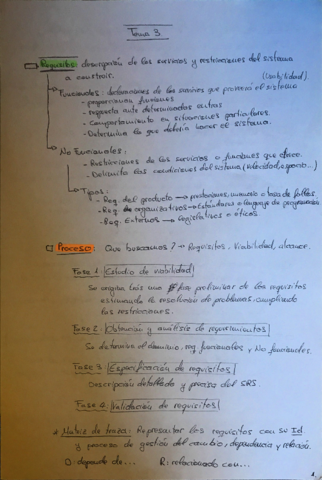 Tema 3
Requisito: descripción de los servicios y restricciones del sistema
a construir.
(Usabilidad)
Funcionales: declaraciones de los servicios que proveerá el sistema
- proporcionan funciones
- respuesta ante determinadas entradas
- Comportamiento en situaciones particulares.
- Determina lo que debería hacer el sistema.
No Funcionales:
- Restricciones de los servicios o funciones que ofrece.
- Delimita las condiciones del sistema (Velocidad, espacio...)
Tipos:
- Req. del producto → prestaciones, memoria o tasa de fallos.
- Req. de organizativos → Estándares o lenguaje de programación
- Req. Externos → legislativos o éticos.
Proceso: Que buscamos? → Requisitos. Viabilidad, alcance.
Fase 1: Estudio de viabilidad
Se origina tras una preliminar de los requisitos
estimando la resolución de problemas cumpliendo
las restricciones.
Fase 2: Obtención y análisis de requerimientos
Se determina el dominio, req funcionales y No funcionales.
Fase 3: Especificación de requisitos
Descripción detallada y precisa del SRS.
Fase 4: Validación de requisitos
* Matriz de traza: Representar los requisitos con su Id.
y proceso de gestión del cambio, dependencia y relación.
D: depende de... R: relacionado con...